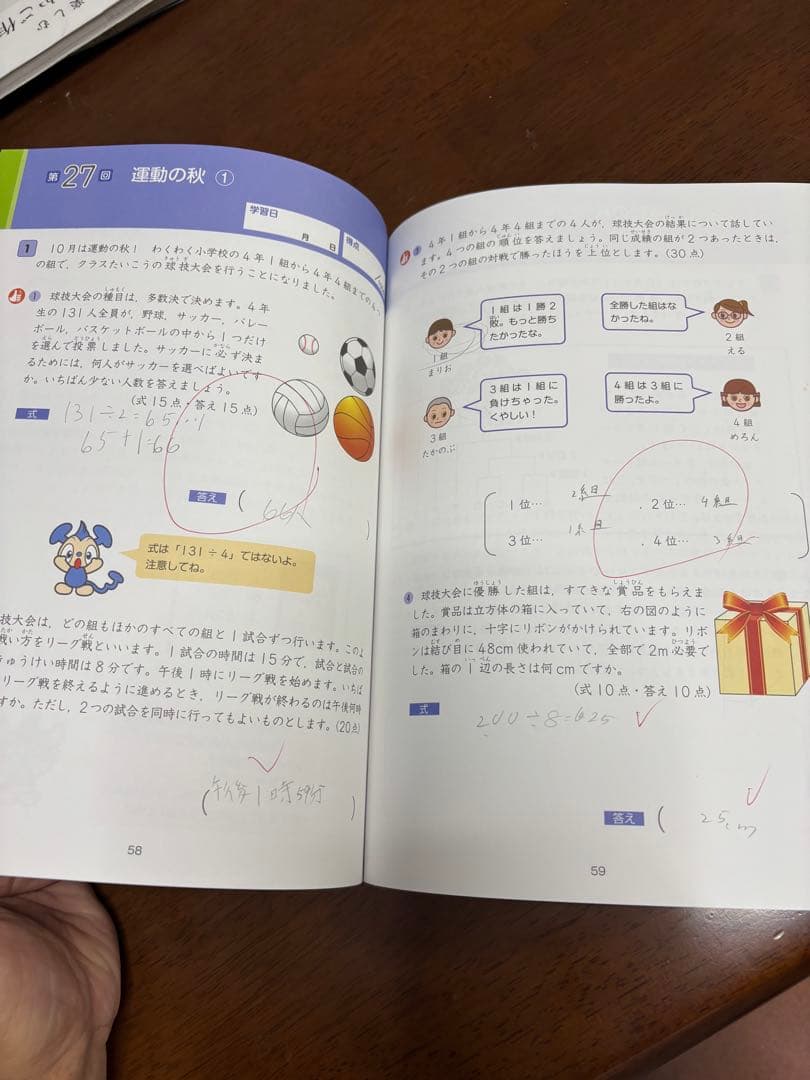 楽しむ
第27回 運動の秋 ①
学習日
月 日
得点
1 10月は運動の秋! わくわく小学校の4年1組から4年4組までの4つ
の組で,クラスたいこうの球技大会を行うことになりました。
① 球技大会の種目は,多数決で決めます。4年
生の131人全員が,野球,サッカー,バレー
ボール,バスケットボールの中から1つだけ
を選んで投票しました。サッカーに必ず決ま
るためには,何人がサッカーを選べばよいです
か。いちばん少ない人数を答えましょう。
(式15点・答え15点)
式
131÷2=65…1
65+1=66
答え ( 66人 )
式は「131÷4」ではないよ。
注意してね。
技大会は,どの組もほかのすべての組と1試合ずつ行います。このよ
戦い方をリーグ戦といいます。1試合の時間は15分で,試合と試合の
きゅうけい時間は8分です。午後1時にリーグ戦を始めます。いちば
リーグ戦を終えるように進めるとき,リーグ戦が終わるのは午後何時
すか。ただし,2つの試合を同時に行ってもよいものとします。(20点)
( 午後1時59分 )
58
③ 4年1組から4年4組までの4人が,球技大会の結果について話してい
ます。4つの組の順位を答えましょう。同じ成績の組が2つあったときは,
その2つの組の対戦で勝ったほうを上位とします。(30点)
1組は1勝2
敗。もっと勝ち
たかったな。
1組
まりお
全勝した組はな
かったね。
2組
える
3組は1組に
負けちゃった。
くやしい!
3組
たかのぶ
4組は3組に
勝ったよ。
4組
めろん
( 1位… 2組目 , 2位… 4組目
3位… 1組目 , 4位… 3組目 )
④ 球技大会に優勝した組は,すてきな賞品をもらえま
した。賞品は立方体の箱に入っていて,右の図のように
箱のまわりに,十字にリボンがかけられています。リボ
ンは結び目に48cm使われていて,全部で2m必要で
した。箱の1辺の長さは何cmですか。
(式10点・答え10点)
式
200÷8=25
答え ( 25cm
59